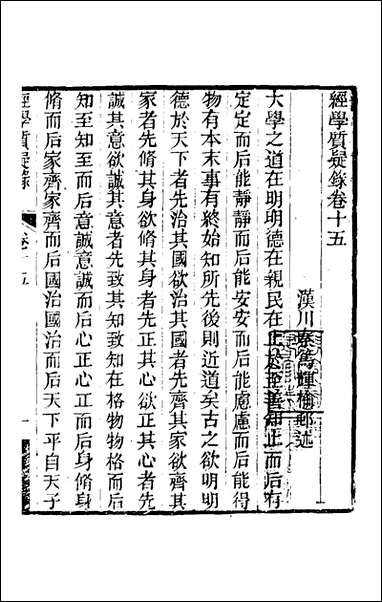 經學質疑錄卷十五
漢川秦篤輝榆邨述
大學之道在明明德在親民在止於至善知止而后有
定定而后能靜靜而后能安安而后能慮慮而后能得
物有本末事有終始知所先後則近道矣古之欲明明
德於天下者先治其國欲治其國者先齊其家欲齊其
家者先脩其身欲脩其身者先正其心欲正其心者先
誠其意欲誠其意者先致其知致知在格物物格而后
知至知至而后意誠意誠而后心正心正而后身脩身
脩而后家齊家齊而后國治國治而后天下平自天子
經學質疑錄
卷十五
一